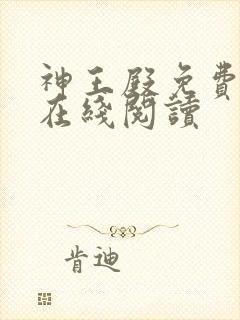 神王殿免費
在綫閱讀
肯迪